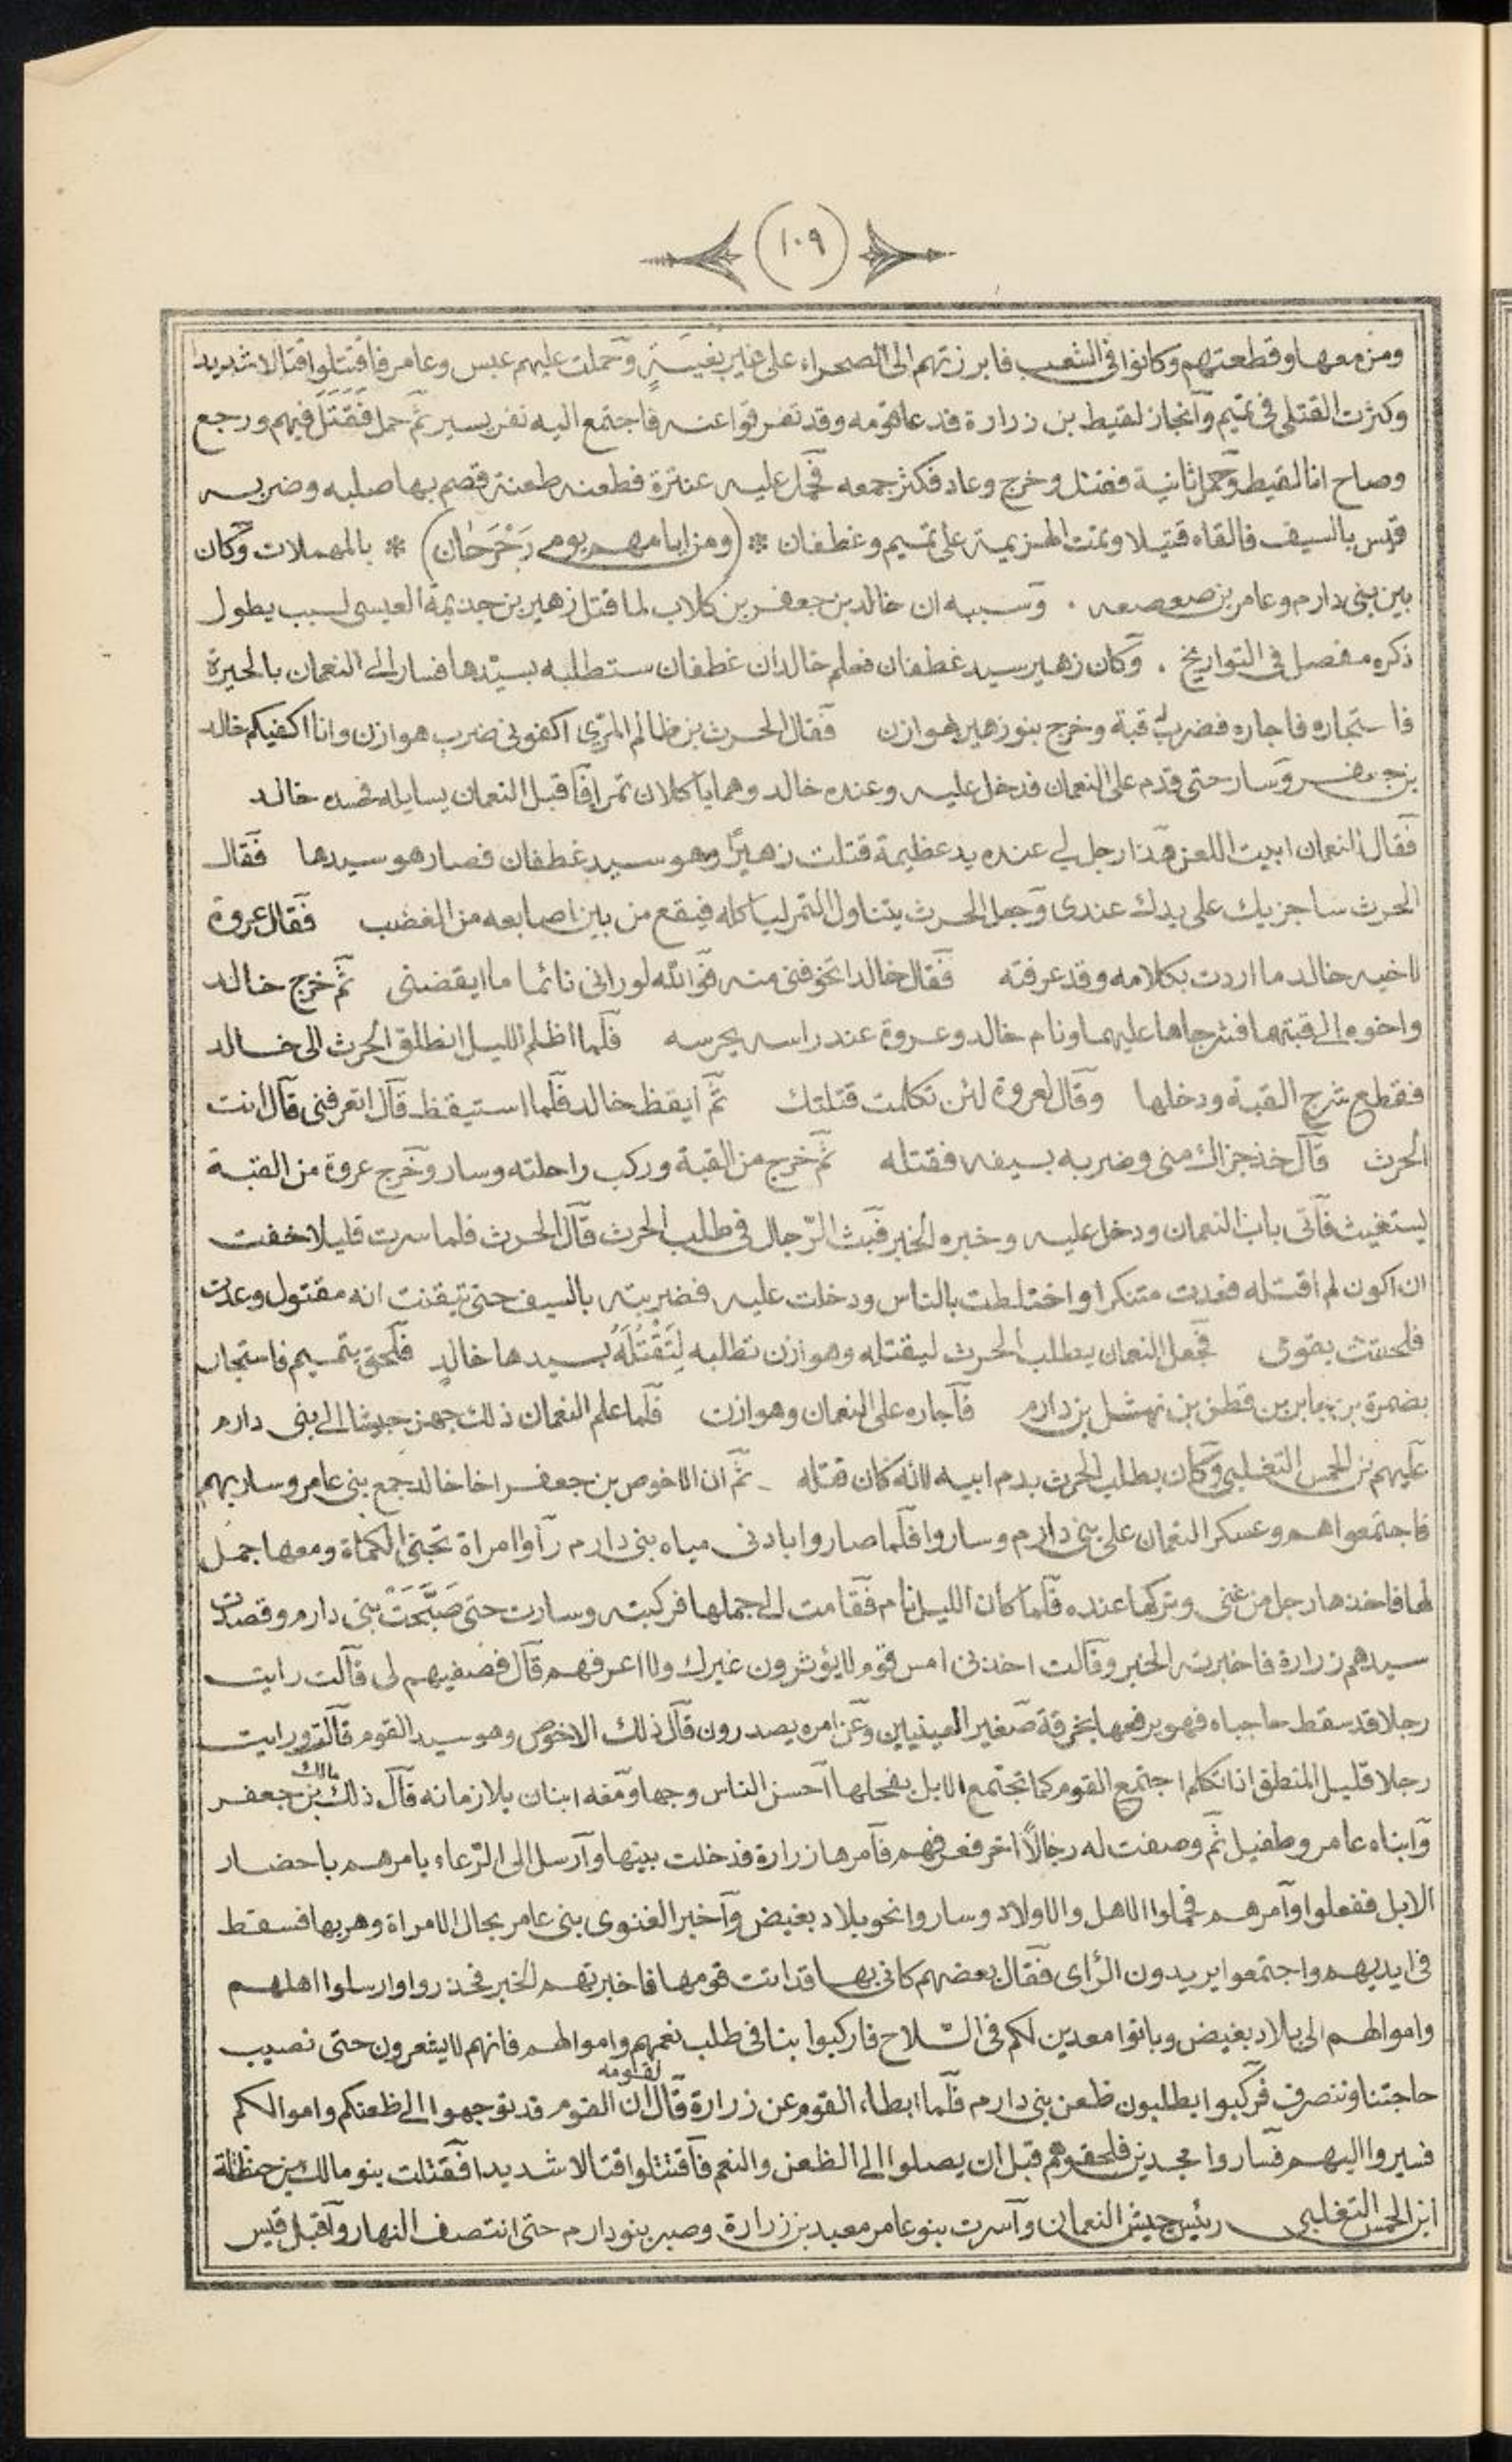 ١٠٩
ومن معها وقطعتهم وكانوا فى الشعب فابرزتهم الى الصحراء على غير تعبية وحملت عليهم عبس وعامر فاقتتلوا قتالا شديدا
وكثرت القتلى فى تميم وانحاز لقيط بن زرارة فدعا قومه وقد تفرقوا عنه فاجتمع اليه نفر يسير ثم حمل فقتل فيهم ورجع
وصاح انا لقيط وحمل ثانية فقتل وخرج وعاد فكثر جمعه فحمل عليه عنترة فطعنه طعنة قصم بها صلبه وضربه
قيس بالسيف فالقاه قتيلا وتمت الهزيمة على تميم وغطفان * (ومن ايامهم يومى رَحْرَحَان) * بالمهملات وكان
بين بنى دارم وعامر بن صعصعه . وسببه ان خالد بن جعفر بن كلاب لما قتل زهير بن جذيمة العبسى لسبب يطول
ذكره مفصل فى التواريخ . وكان زهير سيد غطفان فعلم خالد ان غطفان ستطلبه بسيدها فسار الى النعمان بالحيرة
فاستجاره فاجاره فضرب له قبة وخرج بنو زهير لهوازن فقال الحرث بن ظالم المرّى اكفونى ضرب هوازن وانا اكفيكم خالد
بن جعفر وسار حتى قدم على النعمان فدخل عليه وعنده خالد وهما ياكلان تمرا فاقبل النعمان يسايله فحسده خالد
فقال للنعمان ابيت اللعن هذا رجل لى عنده يد عظيمة قتلت زهيرًا وهو سيد غطفان فصار هو سيدها فقال
الحرث ساجزيك على يدك عندى وجعل الحرث يتناول التمر لياكله فيقع من بين اصابعه من الغضب فقال عروة
لاخيه خالد ما اردت بكلامه وقد عرفته فقال خالد اتخوفنى منه فوالله لو رانى نائما ما ايقضنى ثم خرج خالد
واخوه الى قبتهما فشرجاها عليهما ونام خالد وعروة عند راسه يحرسه فلما اظلم الليل انطلق الحرث الى خالد
فقطع شرج القبة ودخلها وقال لعروة لئن تكلمت قتلتك ثم ايقظ خالد فلما استيقظ قال اتعرفنى قال انت
الحرث قال خذ جزاك منى وضربه بسيفه فقتله ثم خرج من القبة وركب راحلته وسار وخرج عروة من القبة
يستغيث فاتى باب النعمان ودخل عليه وخبره الخبر فبث الرّجال فى طلب الحرث قال الحرث فلما سرت قليلا خفت
ان اكون لم اقتله فعدت متنكرا واختلطت بالناس ودخلت عليه فضربته بالسيف حتى تيقنت انه مقتول وعدت
فلحقت بقومى فجعل النعمان يطلب الحرث ليقتله وهوازن تطلبه لِتَقْتُلَهُ بسيدها خالدٍ فلحق بتميم فاستجار
بضمرة بن جابر بن قطن بن نهشل بن دارم فاجاره على النعمان وهوازن فلما علم النعمان ذلك جهز جيشا الى بنى دارم
عليهم بن الخمس التغلبى وكان يطلب الحرث بدم ابيه لانه كان قتله . ثم ان الاخوص بن جعفر اخا خالد جمع بنى عامر وسار بهم
فاجتمعوا هم وعسكر النعمان على بنى دارم وساروا فلما صاروا بادنى مياه بنى دارم رأوا امراة تجتنى الكماة ومعها جمل
لها فاخذها رجل من غنى وتركها عنده فلما كان الليل نام فقامت الى جملها فركبته وسارت حتى صَبَّحَتْ بنى دارم وقصدت
سيدهم زرارة فاخبرته الخبر وقالت اخذنى امس قوم لا يؤثرون غيرك ولا اعرفهم قال فصفيهم لى قالت رايت
رجلا قد سقط حاجباه فهو يرفعها بخرقة صغير العينين وعن امره يصدرون قال ذلك الاخوص وهو سيد القوم قالت ورايت
رجلا قليل المنطق اذا تكلم اجتمع القوم كما تجتمع الابل بفحلها احسن الناس وجها ومعه ابنان يلازمانه قال ذلك مالك بن جعفر
وابناه عامر وطفيل ثم وصفت له رجالًا اخر فعرفهم فامرها زرارة فدخلت بيتها وارسل الى الرّعاء يامرهم باحضار
الابل ففعلوا وامرهم فحملوا الاهل والاولاد وساروا نحو بلاد بغيض واخبر الغنوى بنى عامر بحال الامراة وهربها فسقط
فى ايديهم واجتمعوا يريدون الرأى فقال بعضهم كانى بها قد اتت قومها فاخبرتهم الخبر فحذروا وارسلوا اهلهم
واموالهم الى بلاد بغيض وباتوا معدين لكم فى السّلاح فاركبوا بنا فى طلب نعمهم واموالهم فانهم لا يشعرون حتى نصيب
حاجتنا وننصرف فركبوا يطلبون ظعن بنى دارم فلما ابطاء القوم عن زرارة قال لقومه ان القوم قد توجهوا الى ظعنكم واموالكم
فسيروا اليهم فساروا مجدين فلحقوهم قبل ان يصلوا الى الظعن والنعم فاقتتلوا قتالا شديدا فقتلت بنو مالك بن حنظلة
ابن الخمس التغلبى رئيس جيش النعمان واسرت بنو عامر معبد بن زرارة وصبر بنو دارم حتى انتصف النهار واقبل قيس